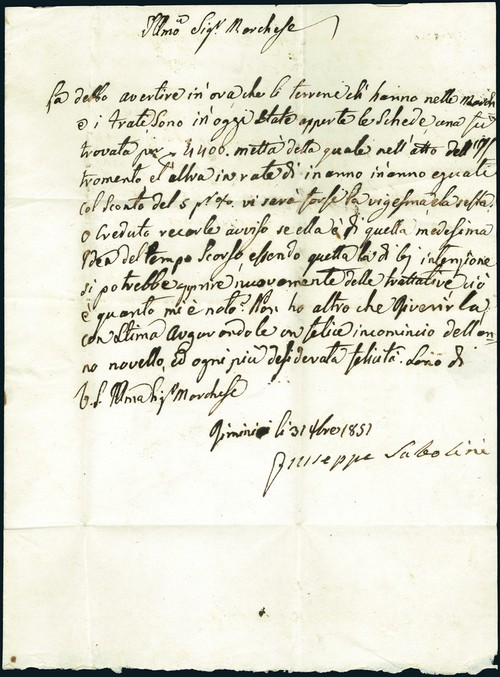 Illmo Sigr Marchese
La debbo avertire in'ora che li terreni ch'hanno nella March
e i frate sono in'oggi state aperte le Schede, una fu
trovata per 4400. mettà della quale nell'atto dell'
tromento e l'altra in rate di in anno in'anno eguale
col Sconto del 5 p% vi sarà forse la vigesima la sesta.
O Creduto recarle avviso se ella è di quella medesima
Idea del tempo scorso essendo quella la di lei intenzione
si potrebbe apprire nuovamente delle trattative ciò
è quanto mi è noto. Non ho altro che riverirla
con stima Augurandole un felice incomincio dell'an-
no novello, ed ogni più desiderata felicità. Sono di
V. S. Illma Sigr Marchese
Rimini li 31 Xbre 1851
Giuseppe